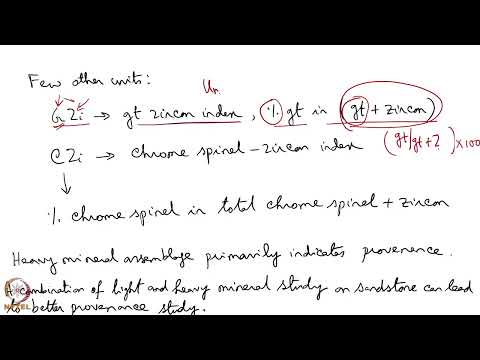 Few other units:
Un
GZi → gt zircon index, % gt in (gt + zircon)
CZi → chrome spinel - zircon index (gt/gt+Z) x 100
↓
% chrome spinel in total chrome spinel + zircon
Heavy mineral assemblage primarily indicates provenence.
A combination of light and heavy mineral study on sandstone can lead
to better provenance study.
NPTEL